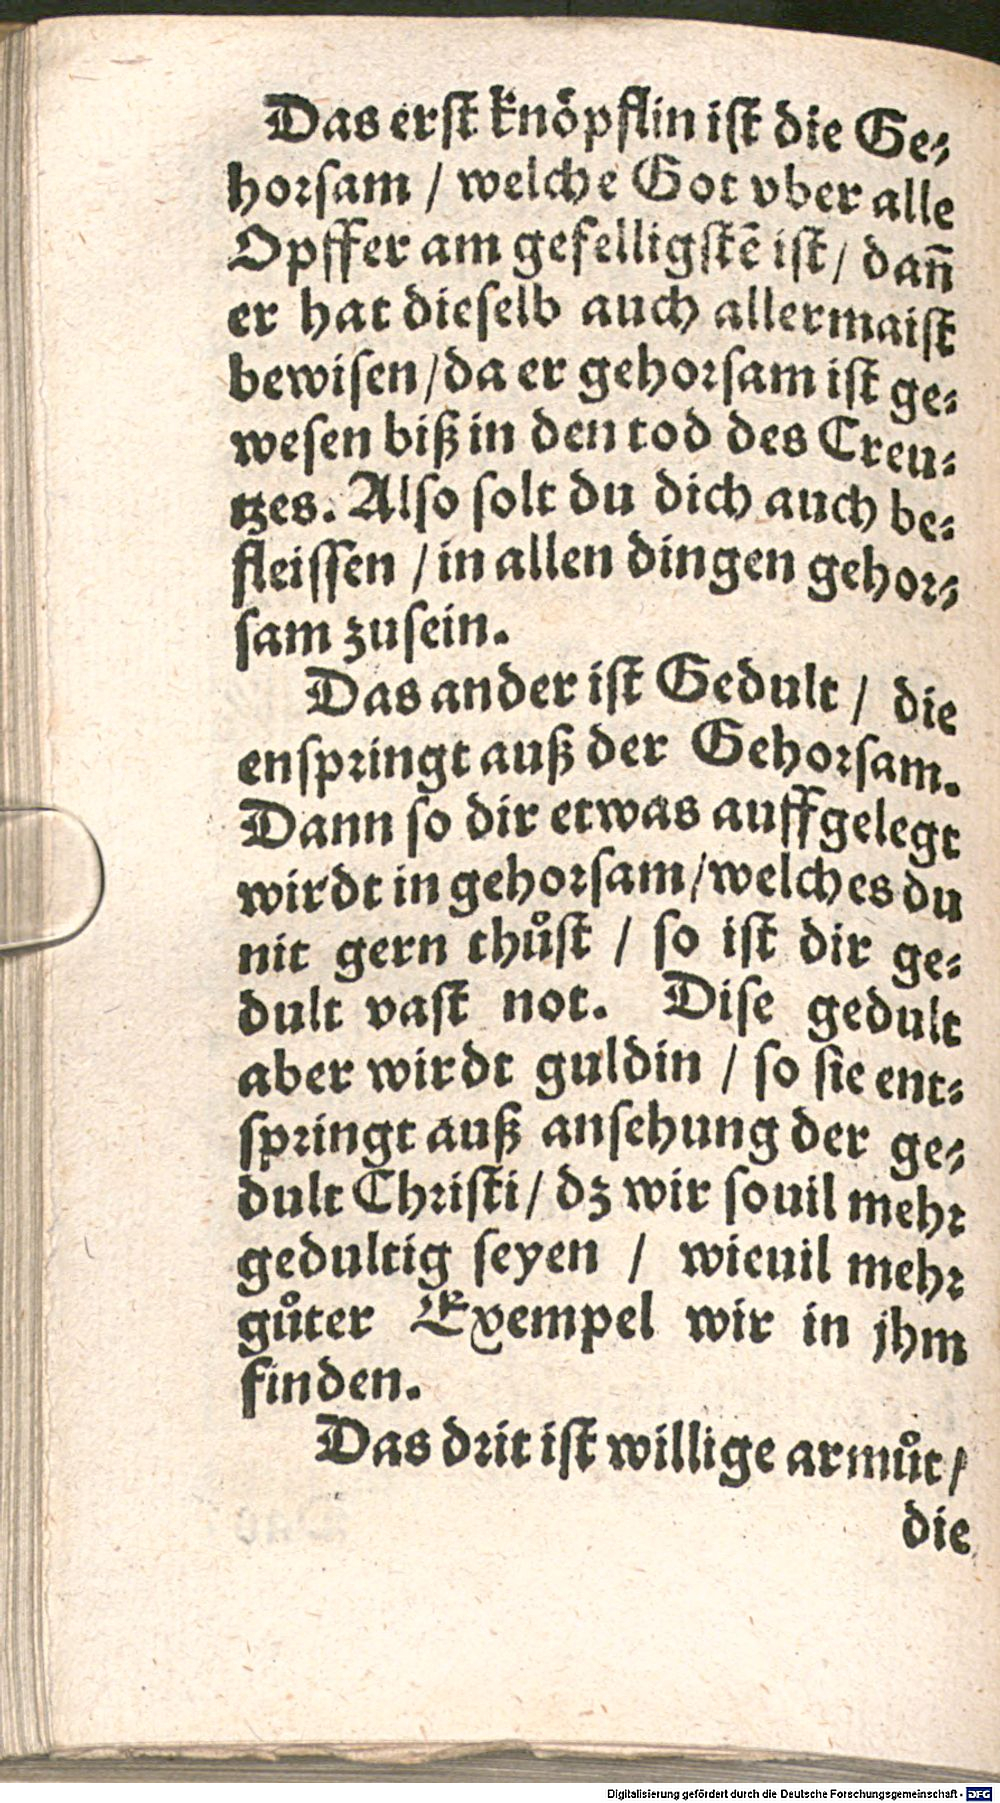 Das erst knöpflin ist die Ge⸗
horsam / welche Got vber alle
Opffer am gefelligstē ist / dañ
er hat dieselb auch allermaist
bewisen / da er gehorsam ist ge⸗
wesen biß in den tod des Creu⸗
tzes. Also solt du dich auch be⸗
fleissen / in allen dingen gehor⸗
sam zusein.
Das ander ist Gedult / die
enspringt auß der Gehorsam.
Dann so dir etwas auffgelegt
wirdt in gehorsam / welches du
nit gern thůst / so ist dir ge⸗
dult vast not. Dise gedult
aber wirdt guldin / so sie ent⸗
springt auß ansehung der ge⸗
dult Christi / dz wir souil mehr
gedultig seyen / wieuil mehr
gůter Exempel wir in jhm
finden.
Das drit ist willige armůt /
die
Digitalisierung gefördert durch die Deutsche Forschungsgemeinschaft - DFG